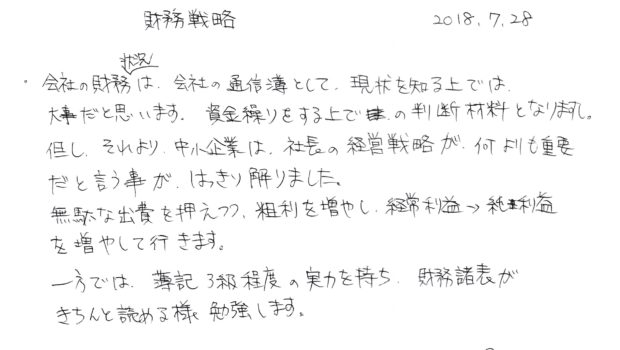 財務戦略 2018.7.28
・会社の財務状況は、会社の通信簿として、現状を知る上では
大事だと思います。資金繰りをする上での判断材料となります。
但し、それより、中小企業は、社長の経営戦略が、何よりも重要
だと言う事が、はっきり解りました。
無駄な出費を押えつつ、粗利を増やし、経常利益→純利益
を増やして行きます。
一方では、薄記3級程度の実力を持ち、財務諸表が
きちんと読める様、勉強します。